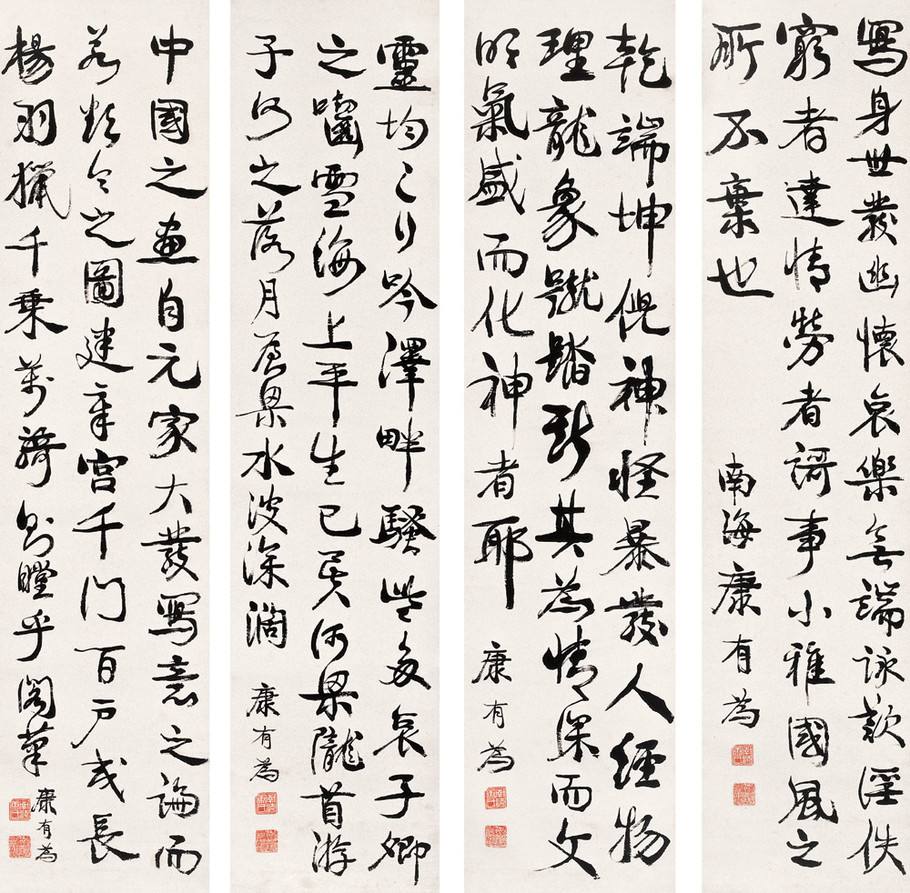 寫身世發幽懷哀樂無端詠歎淫佚
窮者達情勞者謌事小雅國風之
所不棄也
南海康有為
乾端坤倪神怪暴發人經物
理龍象蹴踏斯其為情深而文
明氣盛而化神者耶
康有為
靈均之行吟澤畔騷些多哀子卿
之嚙雪海上平生已矣河梁隴首游
子何之落月屋梁水波深闊
康有為
中國之畫自元家大發寫意之論而
若令之圖建章宮千門百戶或長
楊羽獵千乘萬騎則瞠乎閣筆
康有為